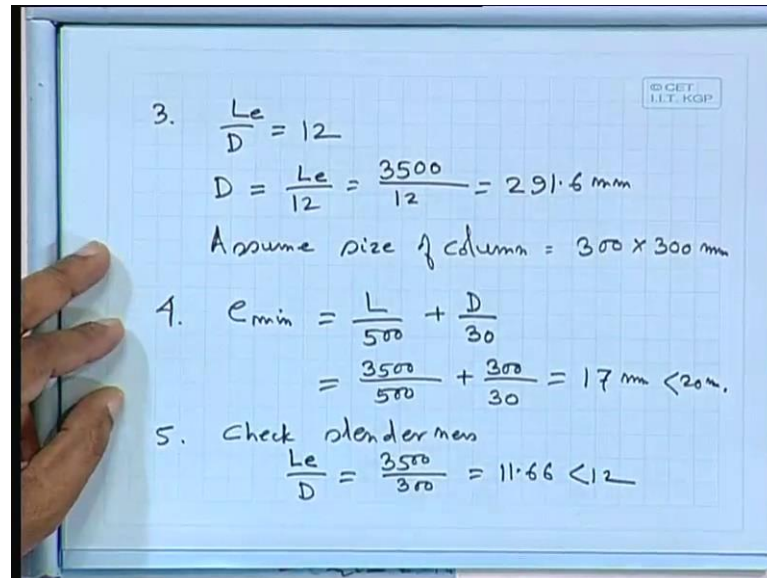 © CET
I.I.T. KGP
3. Le/D = 12
D = Le/12 = 3500/12 = 291.6 mm
Assume size of column = 300 × 300 mm
4. emin = L/500 + D/30
= 3500/500 + 300/30 = 17 mm < 20 m.
5. Check slenderness
Le/D = 3500/300 = 11.66 < 12